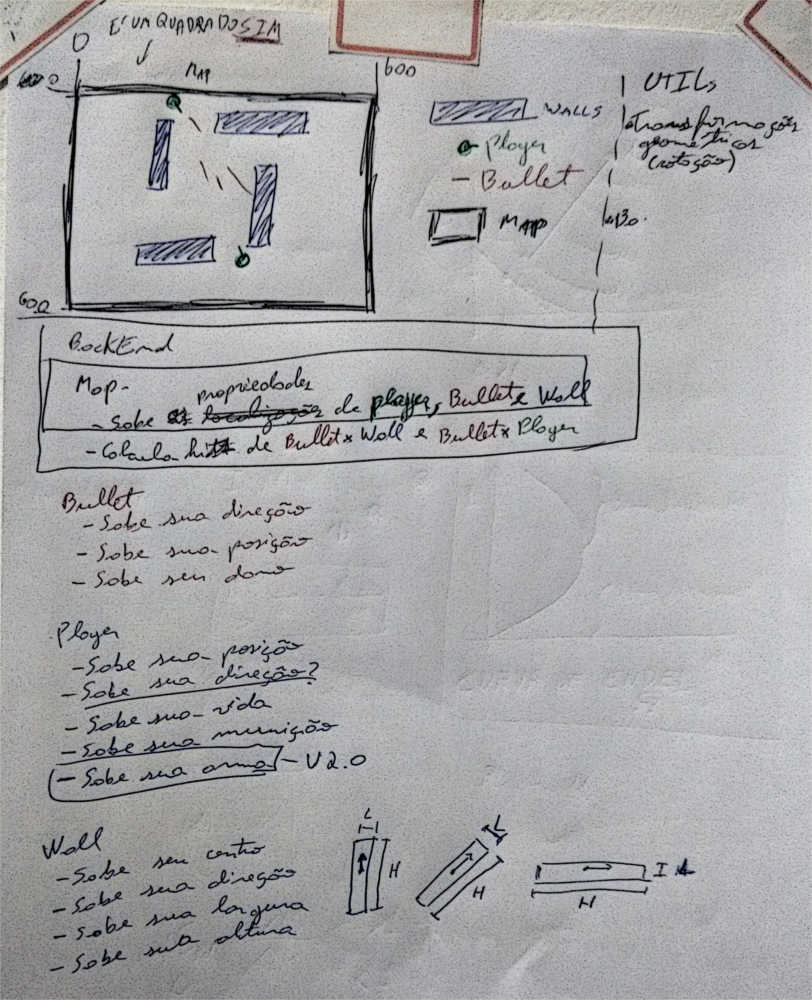 É UM QUADRADO SIM
0
600
MAP
600
WALLS
Player
Bullet
MAP
UTILs
transformações
geométricas
(rotação)
BackEnd
Map-
propriedades
- Sabe as localizações de player, Bullet e Wall
- Calcula hits de Bullet x Wall e Bullet x Player
Bullet
- Sabe sua direção
- Sabe sua posição
- Sabe seu dono
Player
- Sabe sua posição
- Sabe sua direção?
- Sabe sua vida
- Sabe sua munição
- Sabe sua arma - V2.0
Wall
- Sabe seu centro
- Sabe sua direção
- Sabe sua largura
- Sabe sua altura
L
H
L
H
H